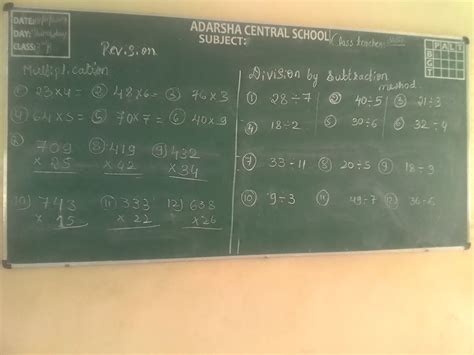 ADARSHA CENTRAL SCHOOL
DATE:
DAY: Thursday
CLASS:
SUBJECT:
Class teacher
P A
B
G
T
Revision
Multiplication
① 23×4= ② 48×6= ③ 76×3
④ 64×5= ⑤ 70×7= ⑥ 40×9
709 ⑧ 419 ⑨ 432
× 25 × 42 × 34
10) 743 ⑪ 333 12) 638
× 15 × 22 × 26
Division by Subtraction method
① 28÷7 ② 40÷5 ③ 21÷3
④ 18÷2 ⑤ 30÷6 ⑥ 32÷4
⑦ 33÷11 ⑧ 20÷5 ⑨ 18÷9
⑩ 9÷3 ⑪ 49÷7 12 36÷6